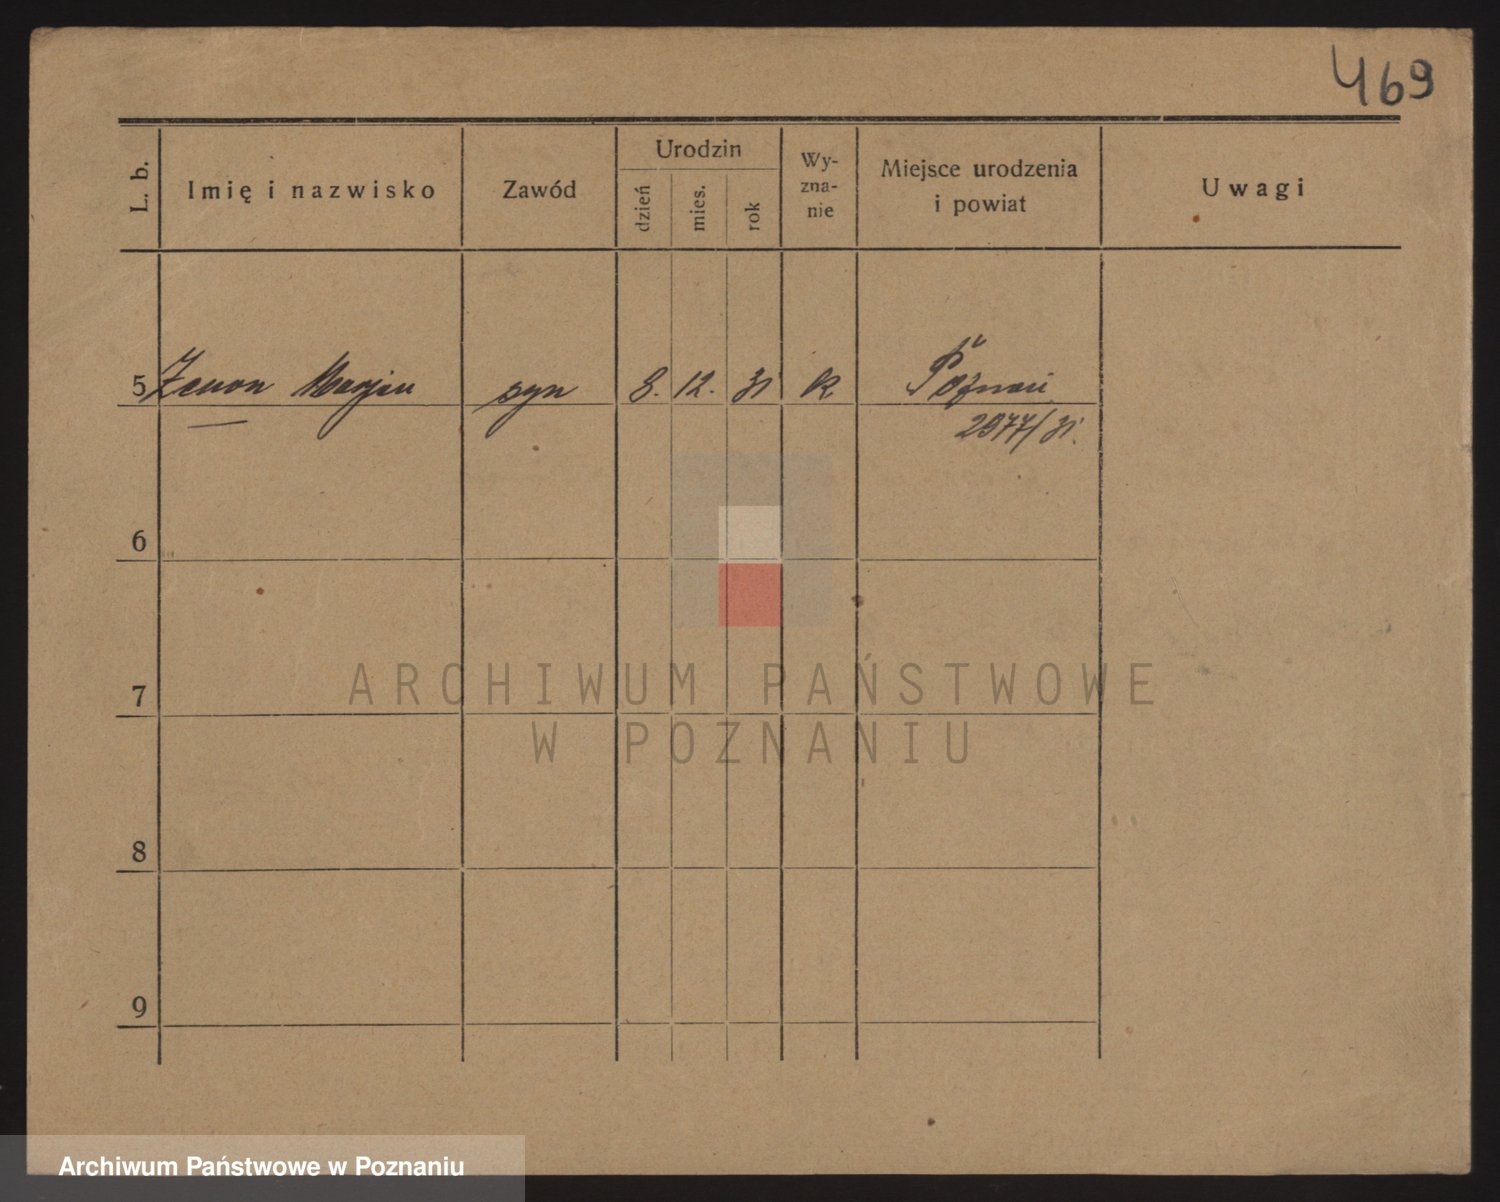 469
L. b.
Imię i nazwisko
Zawód
Urodzin
dzień
mies.
rok
Wy-
zna-
nie
Miejsce urodzenia
i powiat
Uwagi
5 Zenon Marjan syn 8. 12. 31 k Poznań
2977/31.
6
7
8
9
ARCHIWUM PAŃSTWOWE
W POZNANIU
Archiwum Państwowe w Poznaniu